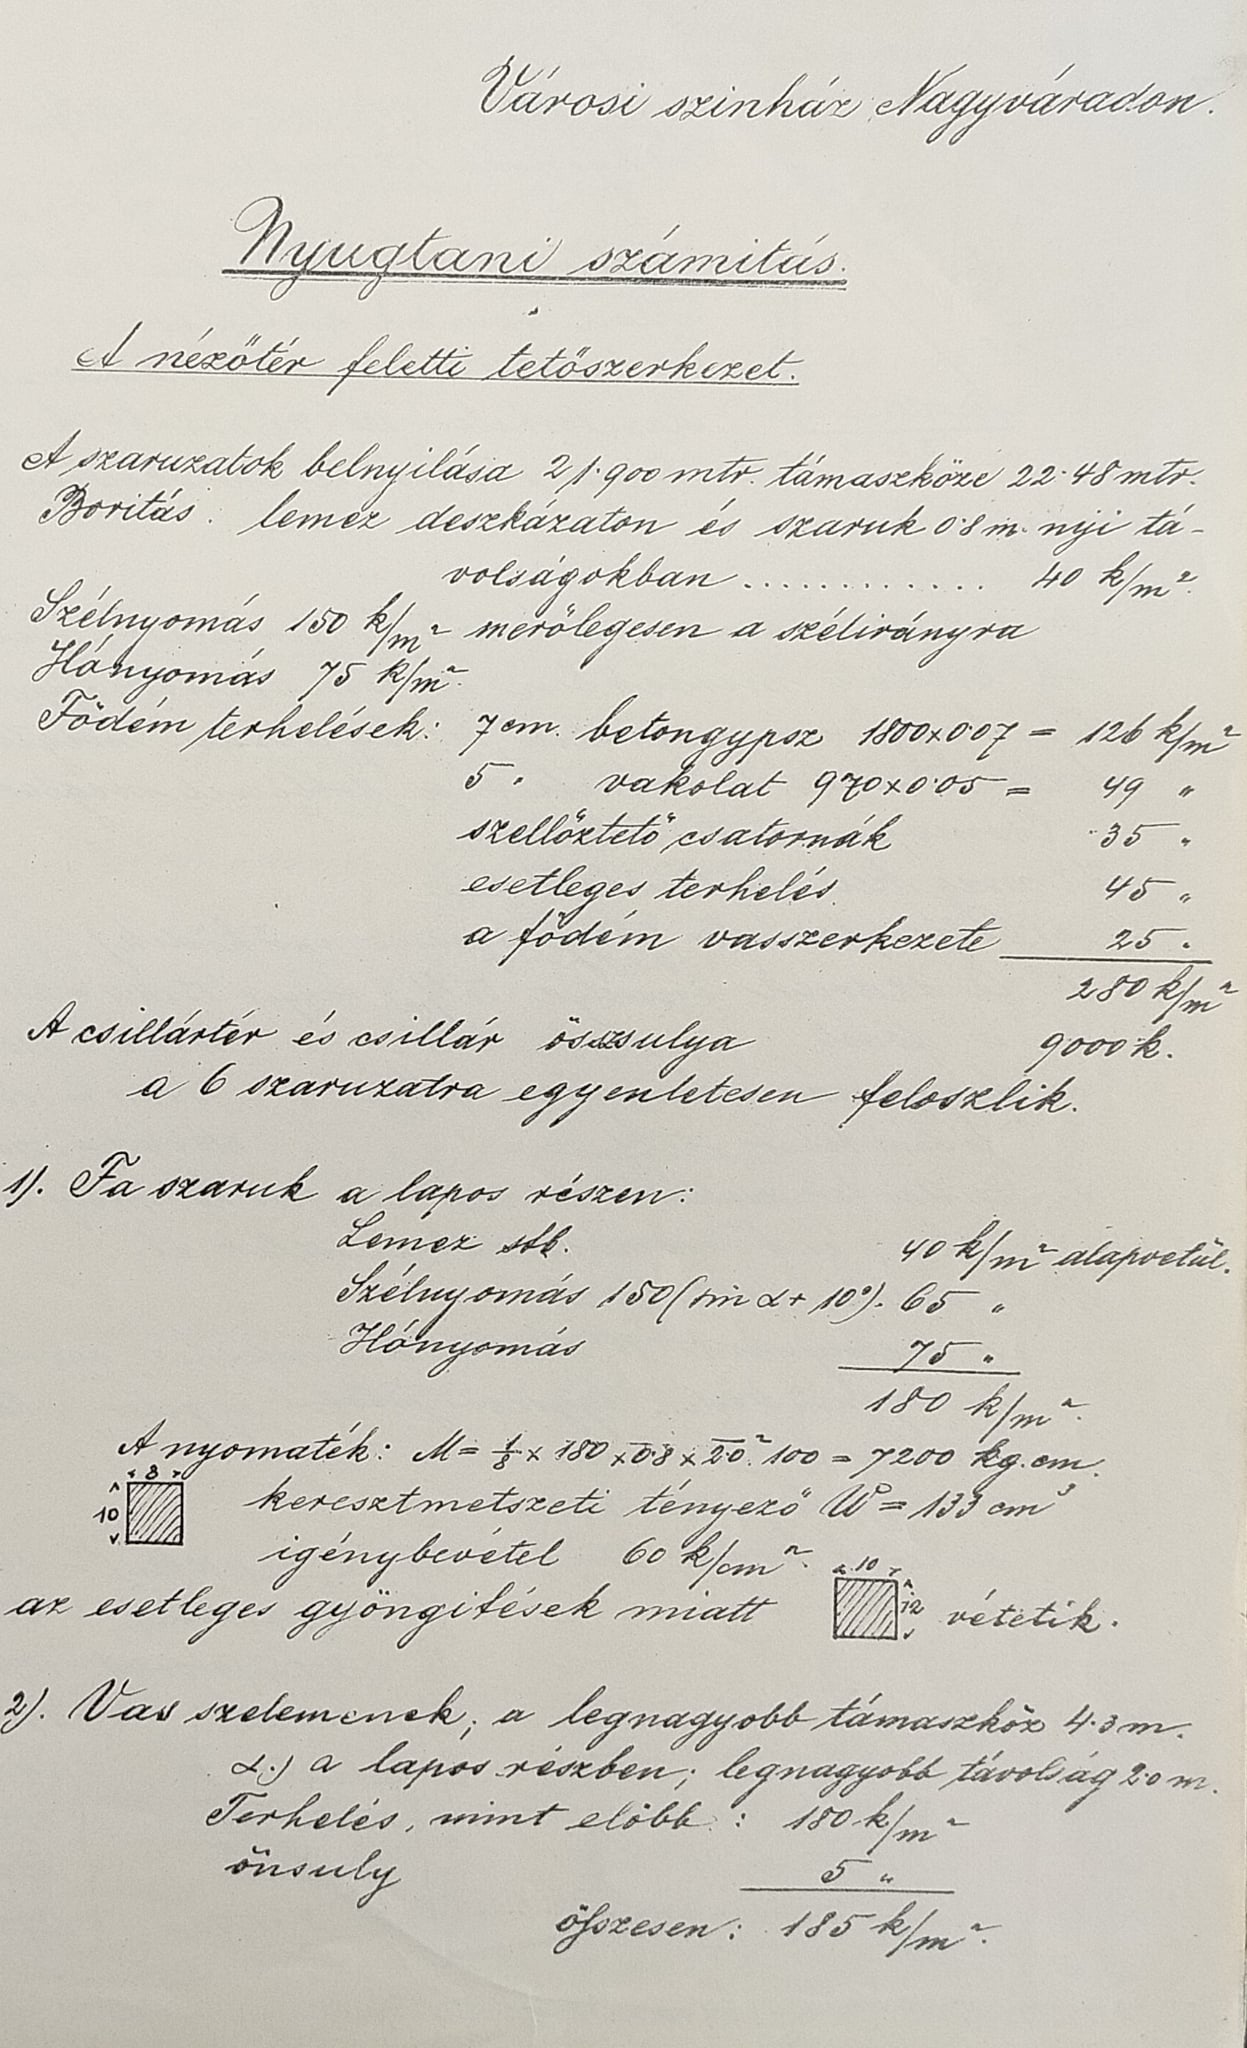 Városi szinház Nagyváradon.
Nyugtani számitás.
A nézőtér feletti tetőszerkezet.
A szaruzatok belnyilása 21·900 mtr. támaszköze 22·48 mtr.
Boritás. lemez deszkázaton és szaruk 0·8 m. nyi tá-
volságokban ............. 40 k/m².
Szélnyomás 150 k/m² merőlegesen a szélirányra
Hónyomás 75 k/m².
Födém terhelések: 7 cm. betongypsz 1800×0·07 = 126 k/m²
5 " vakolat 970×0·05 = 49 "
szellőztető csatornák 35 "
esetleges terhelés 45 "
a födém vasszerkezete 25 "
280 k/m²
A csillártér és csillár összsulya 9000 k.
a 6 szaruzatra egyenletesen feloszlik.
1). Fa szaruk a lapos részen:
Lemez stb. 40 k/m² alapvetül.
Szélnyomás 150 (sin α + 10°). 65 "
Hónyomás 75 "
180 k/m².
A nyomaték: M = 1/8 × 180 × 0·8 × 2·0² 100 = 7200 kg.cm.
8
10 keresztmetszeti tényező W = 133 cm³
igénybevétel 60 k/cm².
10
az esetleges gyöngitések miatt 12 vétetik.
2). Vas szelemenek; a legnagyobb támaszköz 4·3 m.
α.) a lapos részben; legnagyobb távolság 2·0 m.
Terhelés, mint előbb: 180 k/m²
önsuly 5 "
összesen: 185 k/m².